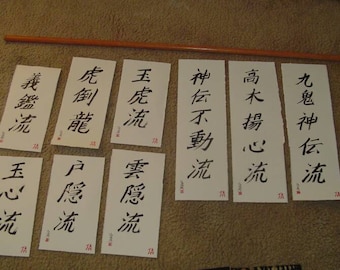 義鑑流
虎倒龍
玉虎流
神伝不動流
高木揚心流
九鬼神伝流
玉心流
户隱流
雲隱流